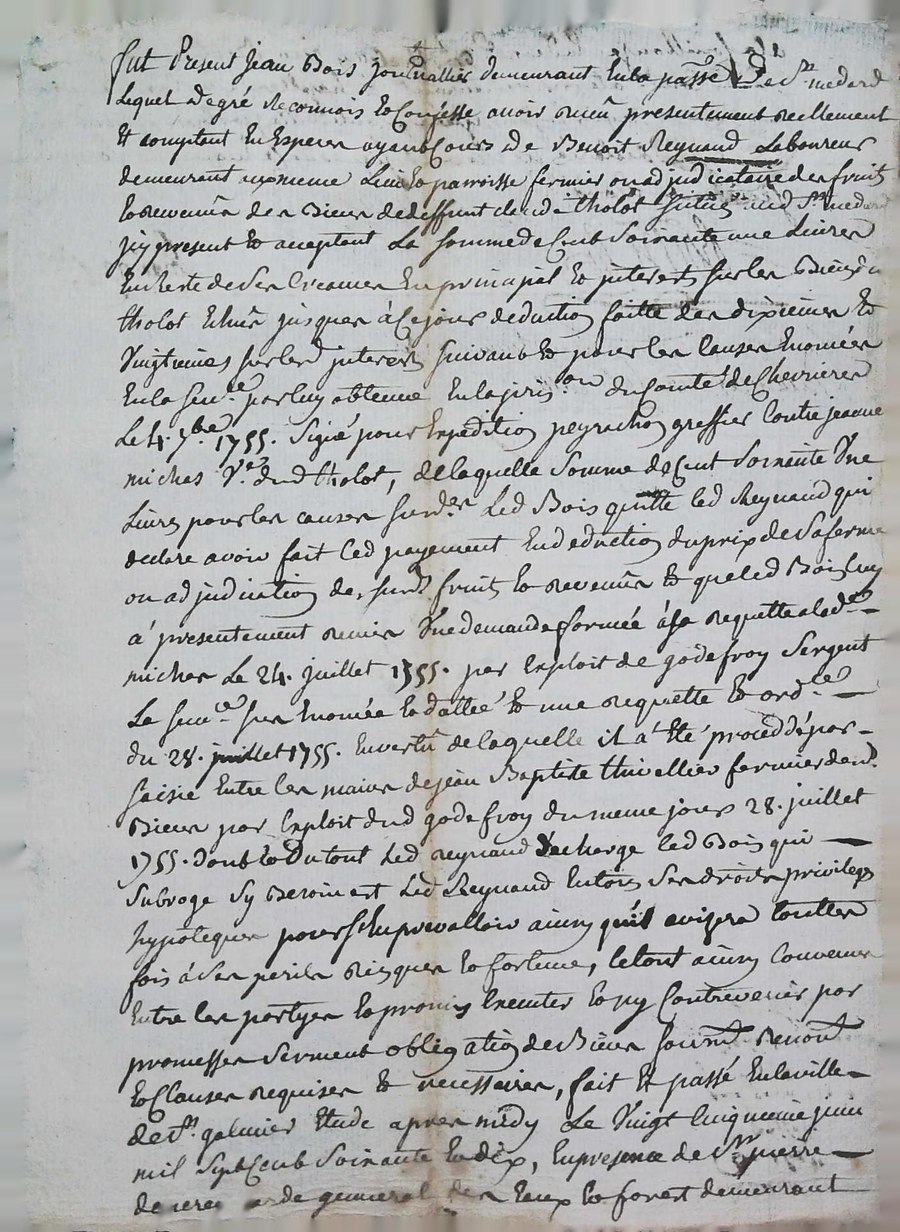 fut Present Jean Bois Journallier demeurant En la passe de St medard
Lequel de gré Reconnois & Confesse avoir Receu presentement reellement
Et comptant En Especes ayant Cours De Benoit Reynaud Laboureur
demeurant au meme Lieu & parroisse fermier ou adjudicataire des fruits
& revenus des Biens de deffunt claude tholot dud St medard
jcy present & aceptant La somme de Cent Soixante une Livres
En Reste de Ses Creances En principal & interets sur les Biens du
tholot Echus jusques à Ce jour deduction faitte des dixiemes &
Vingtiemes sur les d interets suivant & pour les Causes Enoncées
En la sence par luy obtenue En la juris.on du Comté de Chevrieres
Le 4. 7bre 1755. Signé pour Expedition peyrachon greffier Contre jeanne
michas Ve dud tholot, de laquelle Somme de Cent Soixante Une
Livres pour les causes surdes Led Bois quitte led Reynaud qui
declare avoir fait Led payement En deduction du prix de Sa ferme
ou adjudication des surd fruits & revenus & que led Bois luy
a presentement remis Une demande formée à sa requette a lad
michas Le 24. juillet 1755. par Exploit de godefroy Sergent
La sence sus Enoncée & dattée & une requette & ordce
du 28. juillet 1755. En vertu de laquelle il a Eté proceddé par
saisie Entre les mains de jean Baptiste thivellier fermier desd
Biens par Exploit dud godefroy du meme jour 28. juillet
1755. dont & Du tout Led reynaud decharge led Bois qui
Subroge Sy Besoin est Led Reynaud En tous Ses droits privileges
hypoteques pour s'En prevalloir ainsy qu'il avisera touttes
fois à Ses perils Risques & fortune, Le tout ainsy Convenu
Entre les partyes & promis Executer & ny Contrevenir par
promesses Serment obligation de Biens soumt Renont
& Clauses requises & necessaires, fait & passé En la ville
de St galmier Etude apres midy Le Vingt Cinquieme juin
mil Sept Cent Soixante & dix, En presence de Sr pierre
garde general des Eaux & forest demeurant